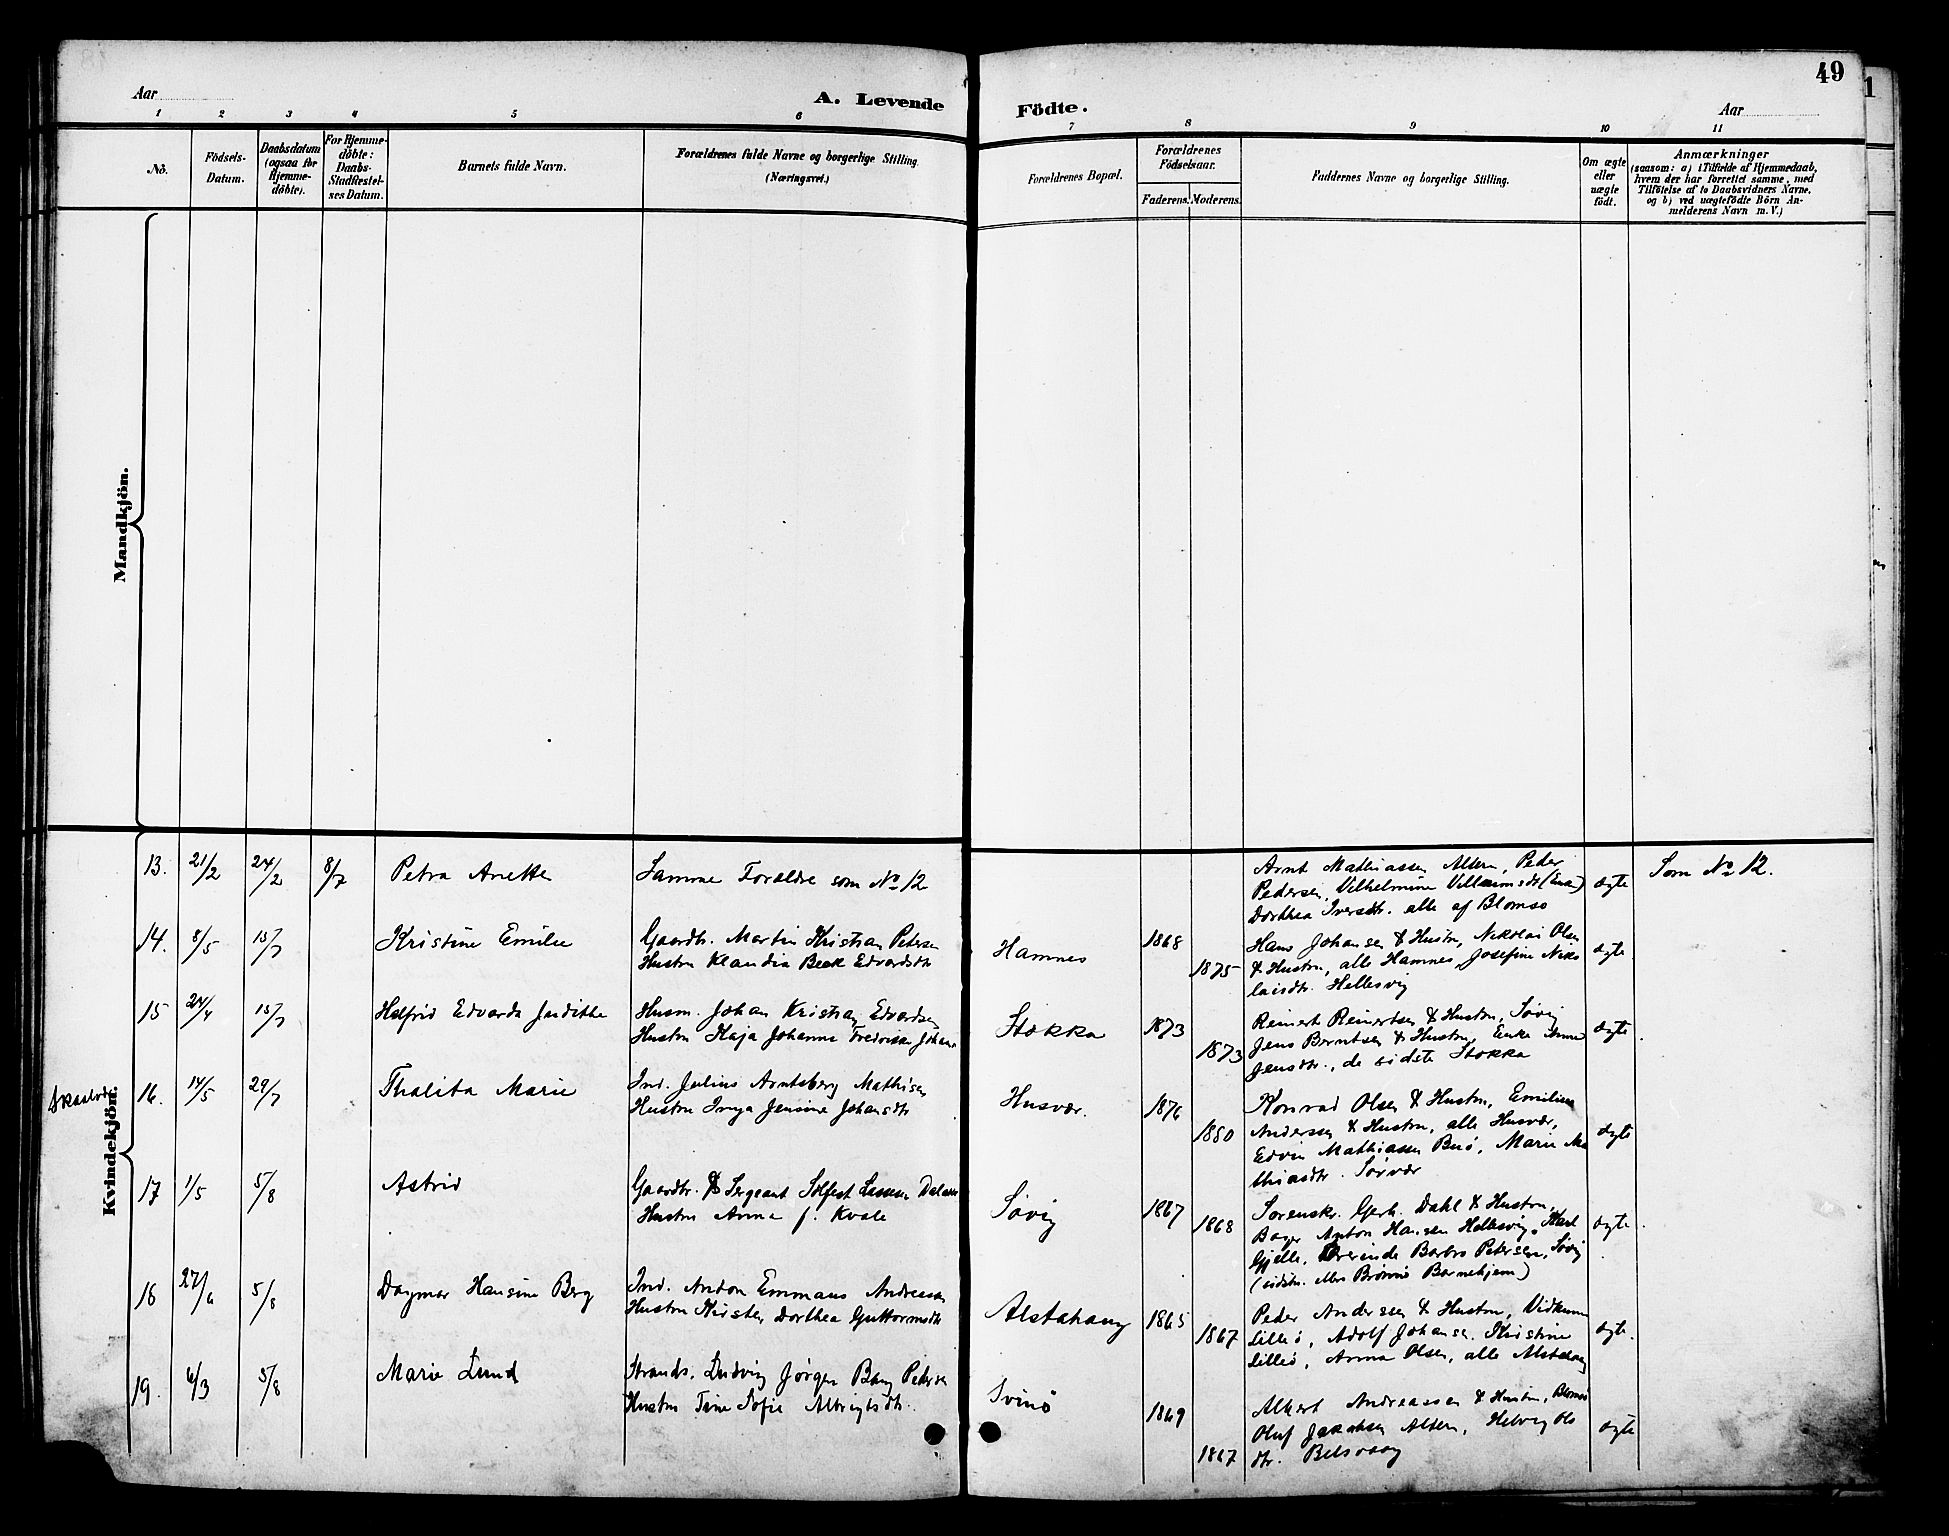 49
Aar
A. Levende
Födte.
Aar
1 2 3 4 5 6
7 8 9 10 11
No.
Födsels-
Datum.
Daabsdatum
(ogsaa for
Hjemme-
döbte).
For Hjemme-
döbte:
Daabs-
Stadfæstel-
ses Datum.
Barnets fulde Navn.
Forældrenes fulde Navne og borgerlige Stilling.
(Næringsvei.)
Forældrenes Bopæl.
Forældrenes
Födselsaar.
Faderens. Moderens.
Faddernes Navne og borgerlige Stilling.
Om ægte
eller
uægte
födt.
Anmærkninger
(saasom: a) i Tilfælde af Hjemmedaab,
hvem der har forrettet samme, med
Tilföielse af to Daabsvidners Navne,
og b) ved uægtefödte Börn An-
melderens Navn m. V.)
Mandkjön.
Kvindekjön.
13. 21/2 24/2 8/7 Petra Anette
Samme Forældre som No 12
Arnt Mathiassen Altern, Peder
Pedersen, Vilhelmine
Dorthea Iversdtr. alle af Blomsø
ægte
Som No 12.
14. 8/5 15/7 Kristine Emilie
Gaardbr. Martin Kristian Petersen
Hustru Klaudia Beck Edvardsdtr
Hamnes
1868
1875
Hans Johansen & Hustru, Nikolai Olsen
& Hustru, alle Hamnes, Josefine Niko
laisdtr. Hellesvig
ægte
15 24/4 15/7 Helfrid Edvarda Judithe
Husm. Johan Kristian Edvardsen
Hustru Kaja Johanna Fredrikke Johans
Stokka
1873
1873
Reinert Reinertsen & Hustru, Søvig
Jens Berntsen & Hustru, Enke Anne
Jensdtr., de sidste Stokka
ægte
16. 14/5 29/7 Thalita Marie
Ind. Julius Arntsberg Mathisen
Hustru Inga Jensine Johansdtr
Husvær.
1876
1880
Konrad Olsen & Hustru, Emilius
Anderssen & Hustru, alle Husvær,
Edvin Mathiassen Buø, Marie Ma
thiasdtr. Sørvær
ægte
17 1/5 5/8 Astrid
Gaardbr. & Sergeant Solfest Lassen
Hustru Anna f. Kvale
Søvig
1867
1868
Sorenskr. Gerh. Dahl & Hustru,
Bager Anton Hansen Hellesvig,
Gjelle, Barbro Petersen, Søvig
(sidstn. Brønnø Barnehjem)
ægte
18 27/6 5/8 Dagmar Hansine Berg
Ind. Anton Emmaus Andreassen
Hustru Kirsten Dorthea Guttormsdtr
Alstahaug
1865
1867
Peder Anderssen & Hustru, Vidkunn
Lilleø, Adolf Johansen, Kristine
Lilleø, Anna Olsen, alle Alstahaug
ægte.
19. 6/3 5/8 Marie Lund
Strands. Ludvig Jørgen Bang Petersen
Hustru Trine Sofie Albrigtsdtr.
Svinø
1869
1867
Albert Andreassen & Hustru, Blomsø
Oluf Jakobsen Altern, Helvig Ols
dtr. Belsvaag
ægte